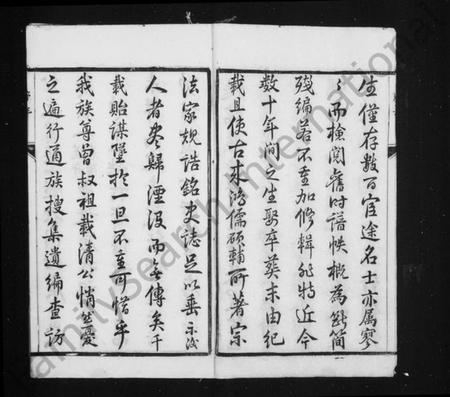 生僅存數百宦途名士亦屬寥
〻而檢閱舊时譜帙概為斷簡
殘編若不重加修輯非特近今
數十年間之生娶卒葵末由紀
載且使古来鴻儒碩輔所著宗
法家規誥銘史誌足以垂示後
人者叅歸湮没而無傳矣千
載貽謀墜於一旦不重可惜乎
我族尊曾叔祖載清公悄然憂
之遍行通族搜集遺編查訪
FamilySearch International